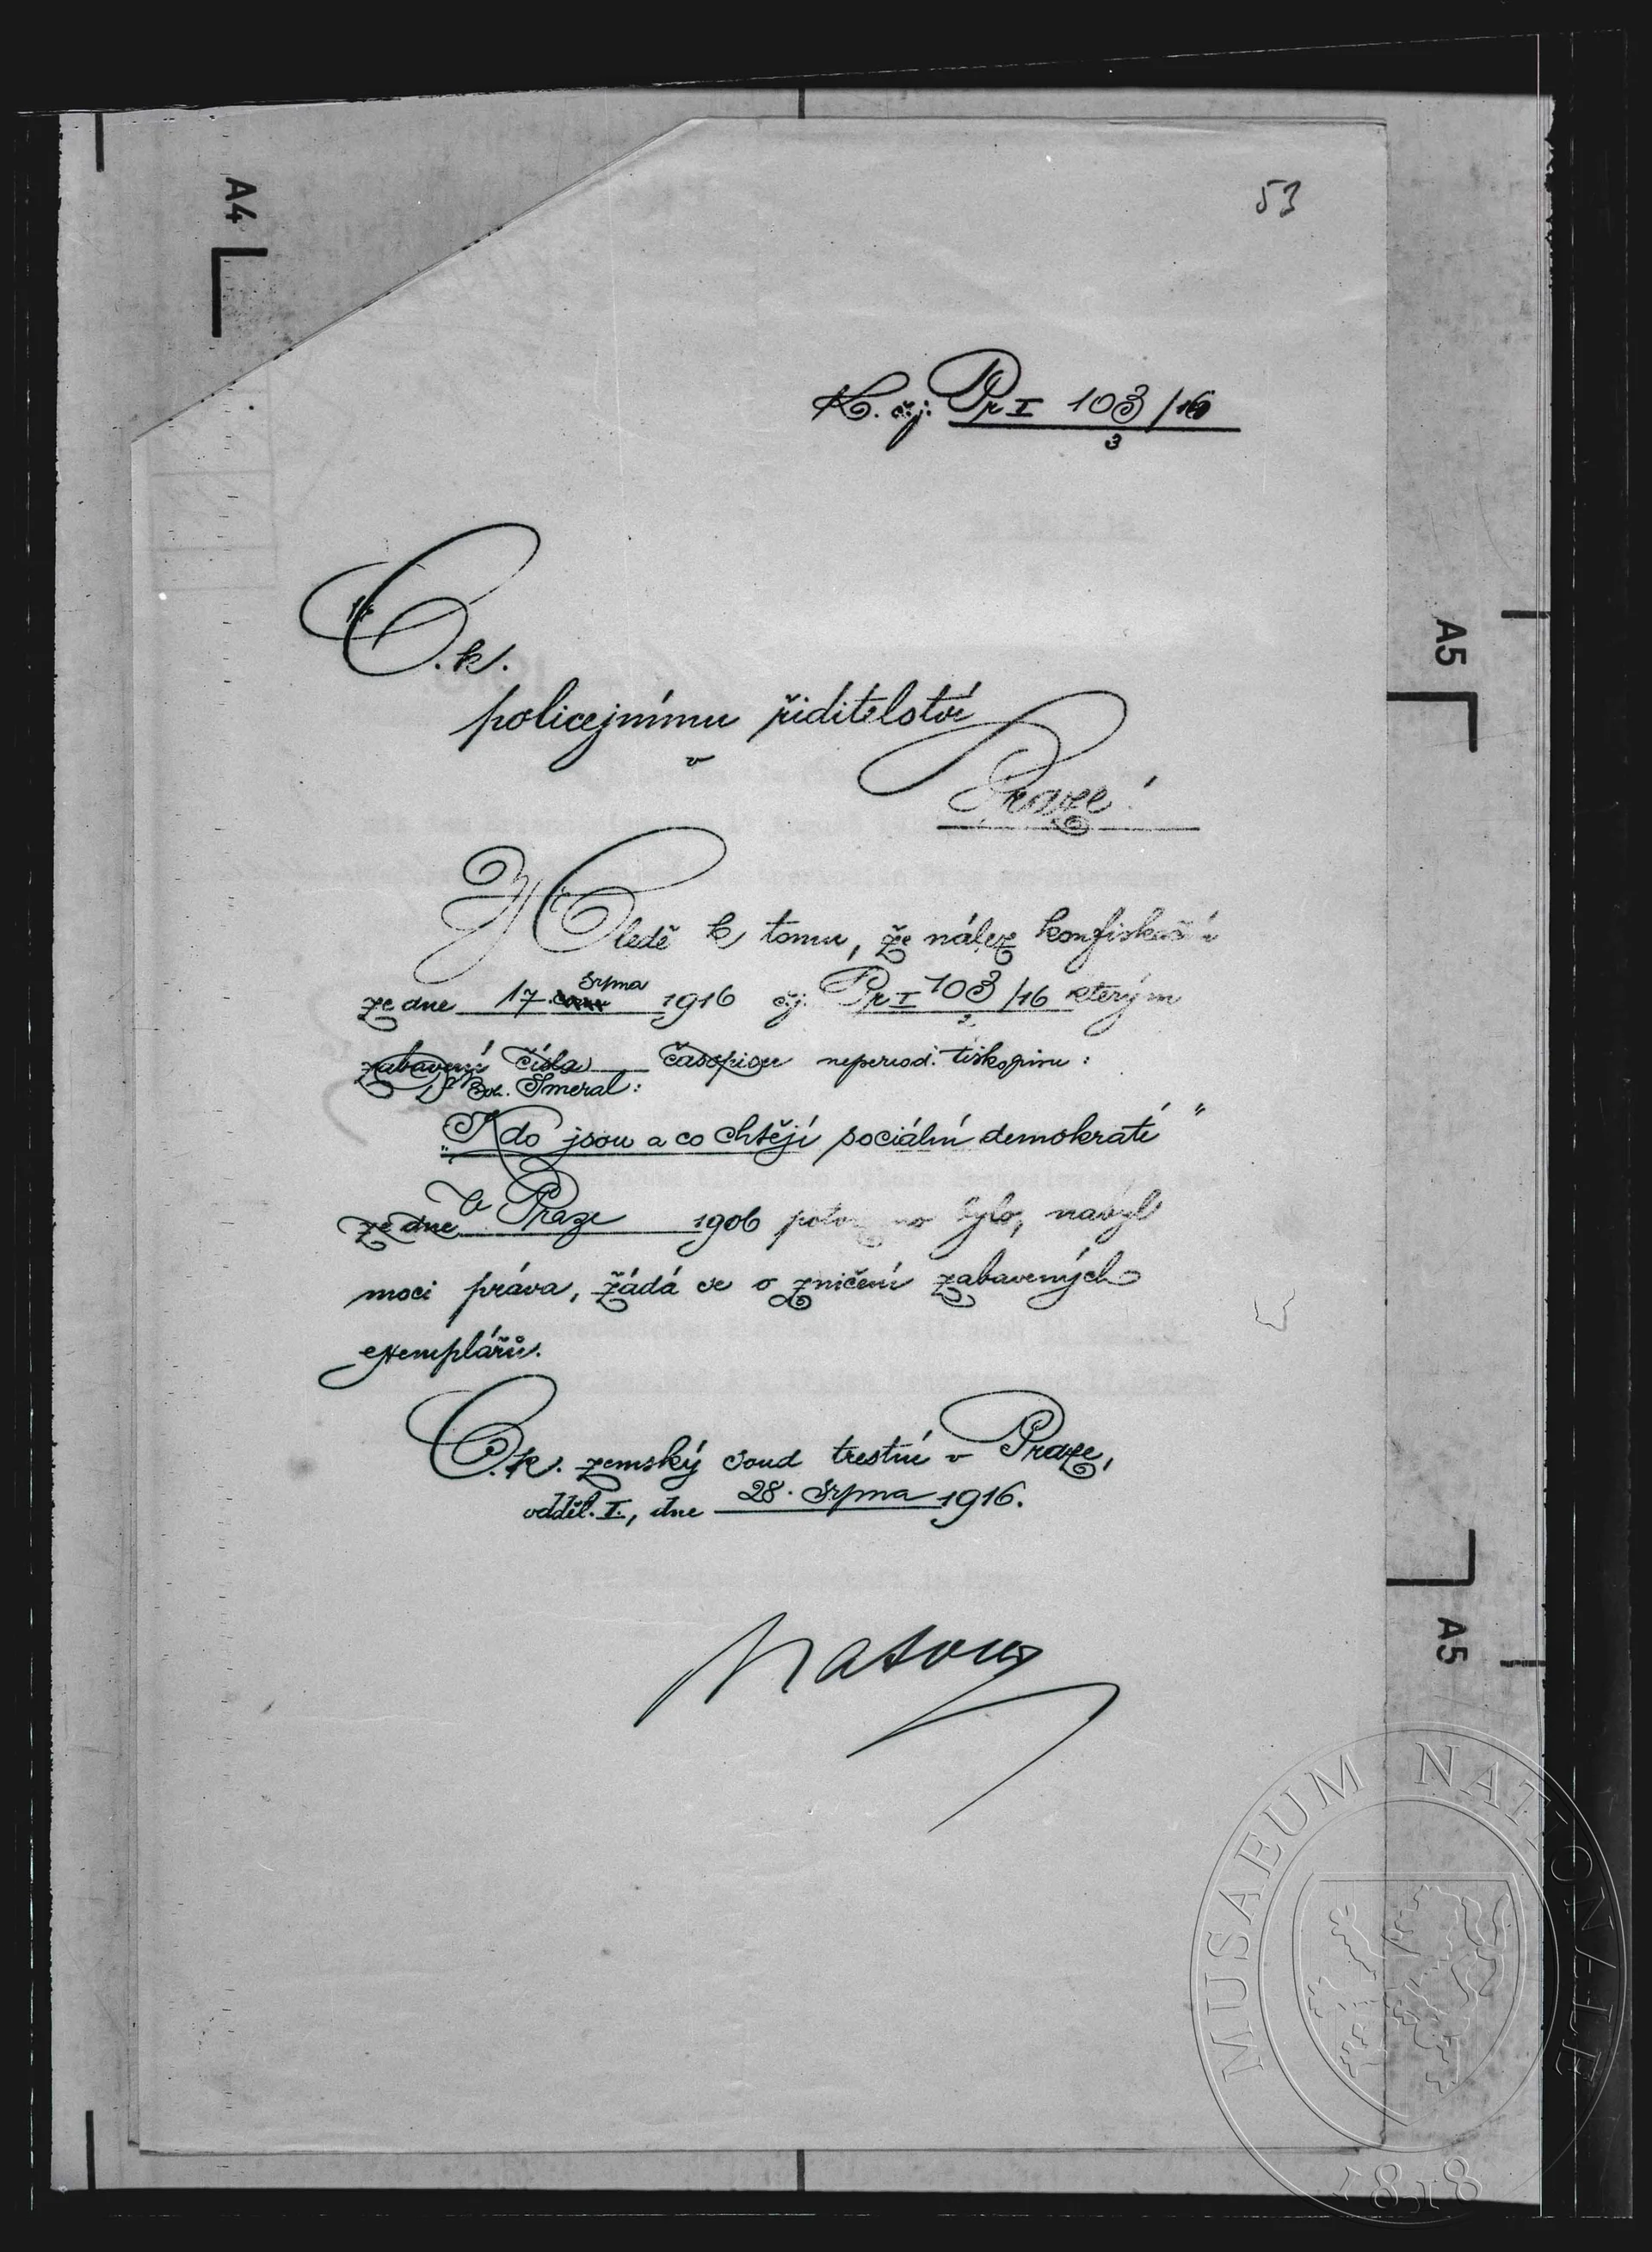 53
K. čj. Pr I 103/16
3
C. k.
policejnímu řiditelství
v
Praze!
Hledě k tomu, že nález konfiskační
ze dne 17 srpna 1916 čj. Pr I 103/16 kterým
2
zabavení čísla časopisu neperiod. tiskopisu:
Dr Boh. Šmeral:
„Kdo jsou a co chtějí sociální demokraté"
ze dne V Praze 1906 potvrzeno bylo, nabyl
moci práva, žádá se o zničení zabavených
exemplářů.
C. k. zemský soud trestní v Praze,
odděl. I., dne 28. srpna 1916.
A4
A5
A5
MUSAEUM NATIONALE
1818